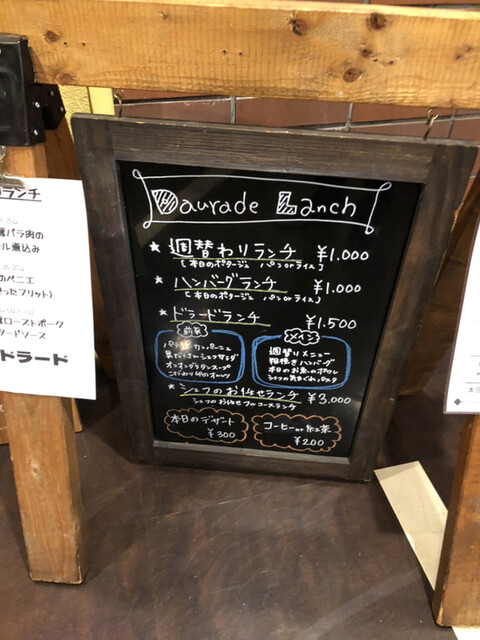 Daurade Lanch
★ 週替わりランチ ¥1.000
[本日のポタージュ パンorライス]
★ ハンバーグランチ ¥1.000
[本日のポタージュ パンorライス]
★ ドラードランチ ¥1.500
前菜
カンパーニュ
オニオングラタンスープ
メイン
週替りメニュー
粗挽きハンバーグ
本日のお魚のポワレ
★ シェフのお任せランチ ¥3,000
シェフのお任せフルコースランチ
本日のデザート
¥300
コーヒーor紅茶
¥200
ランチ
バラ肉の
ル煮込み
のパニエ
ったフリット)
ローストポーク
ードソース
ドラード